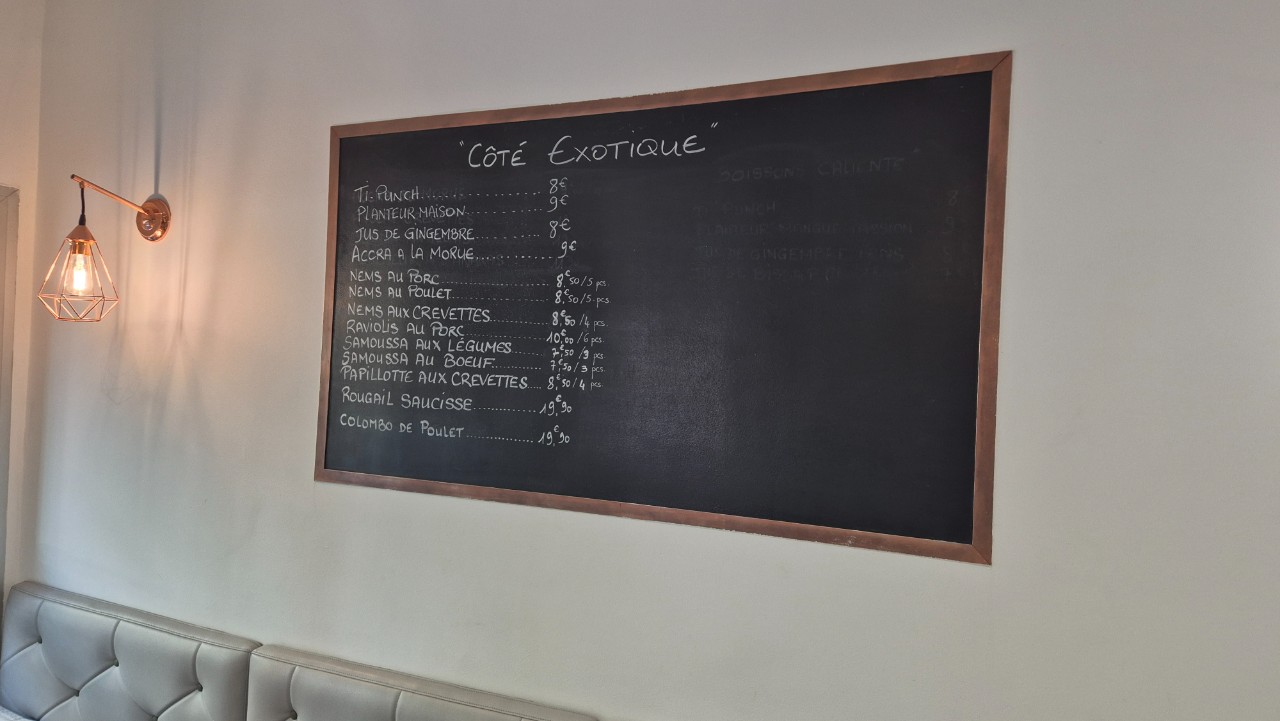 "CÔTÉ EXOTIQUE"
TI-PUNCH.................... 8€
PLANTEUR MAISON............. 9€
JUS DE GINGEMBRE............ 8€
ACCRA A LA MORUE............ 9€
NEMS AU PORC................ 8,€50/5 pcs.
NEMS AU POULET.............. 8,€50/5 pcs.
NEMS AUX CREVETTES.......... 8,€50/4 pcs.
RAVIOLIS AU PORC............ 10,€00/6 pcs.
SAMOUSSA AUX LÉGUMES........ 7,€50/3 pcs.
SAMOUSSA AU BOEUF........... 7,€50/3 pcs.
PAPILLOTTE AUX CREVETTES.... 8,€50/4 pcs.
ROUGAIL SAUCISSE............ 19,€90
COLOMBO DE POULET........... 19,€90
PUNCH
PLANTEUR
JUS DE GINGEMBRE